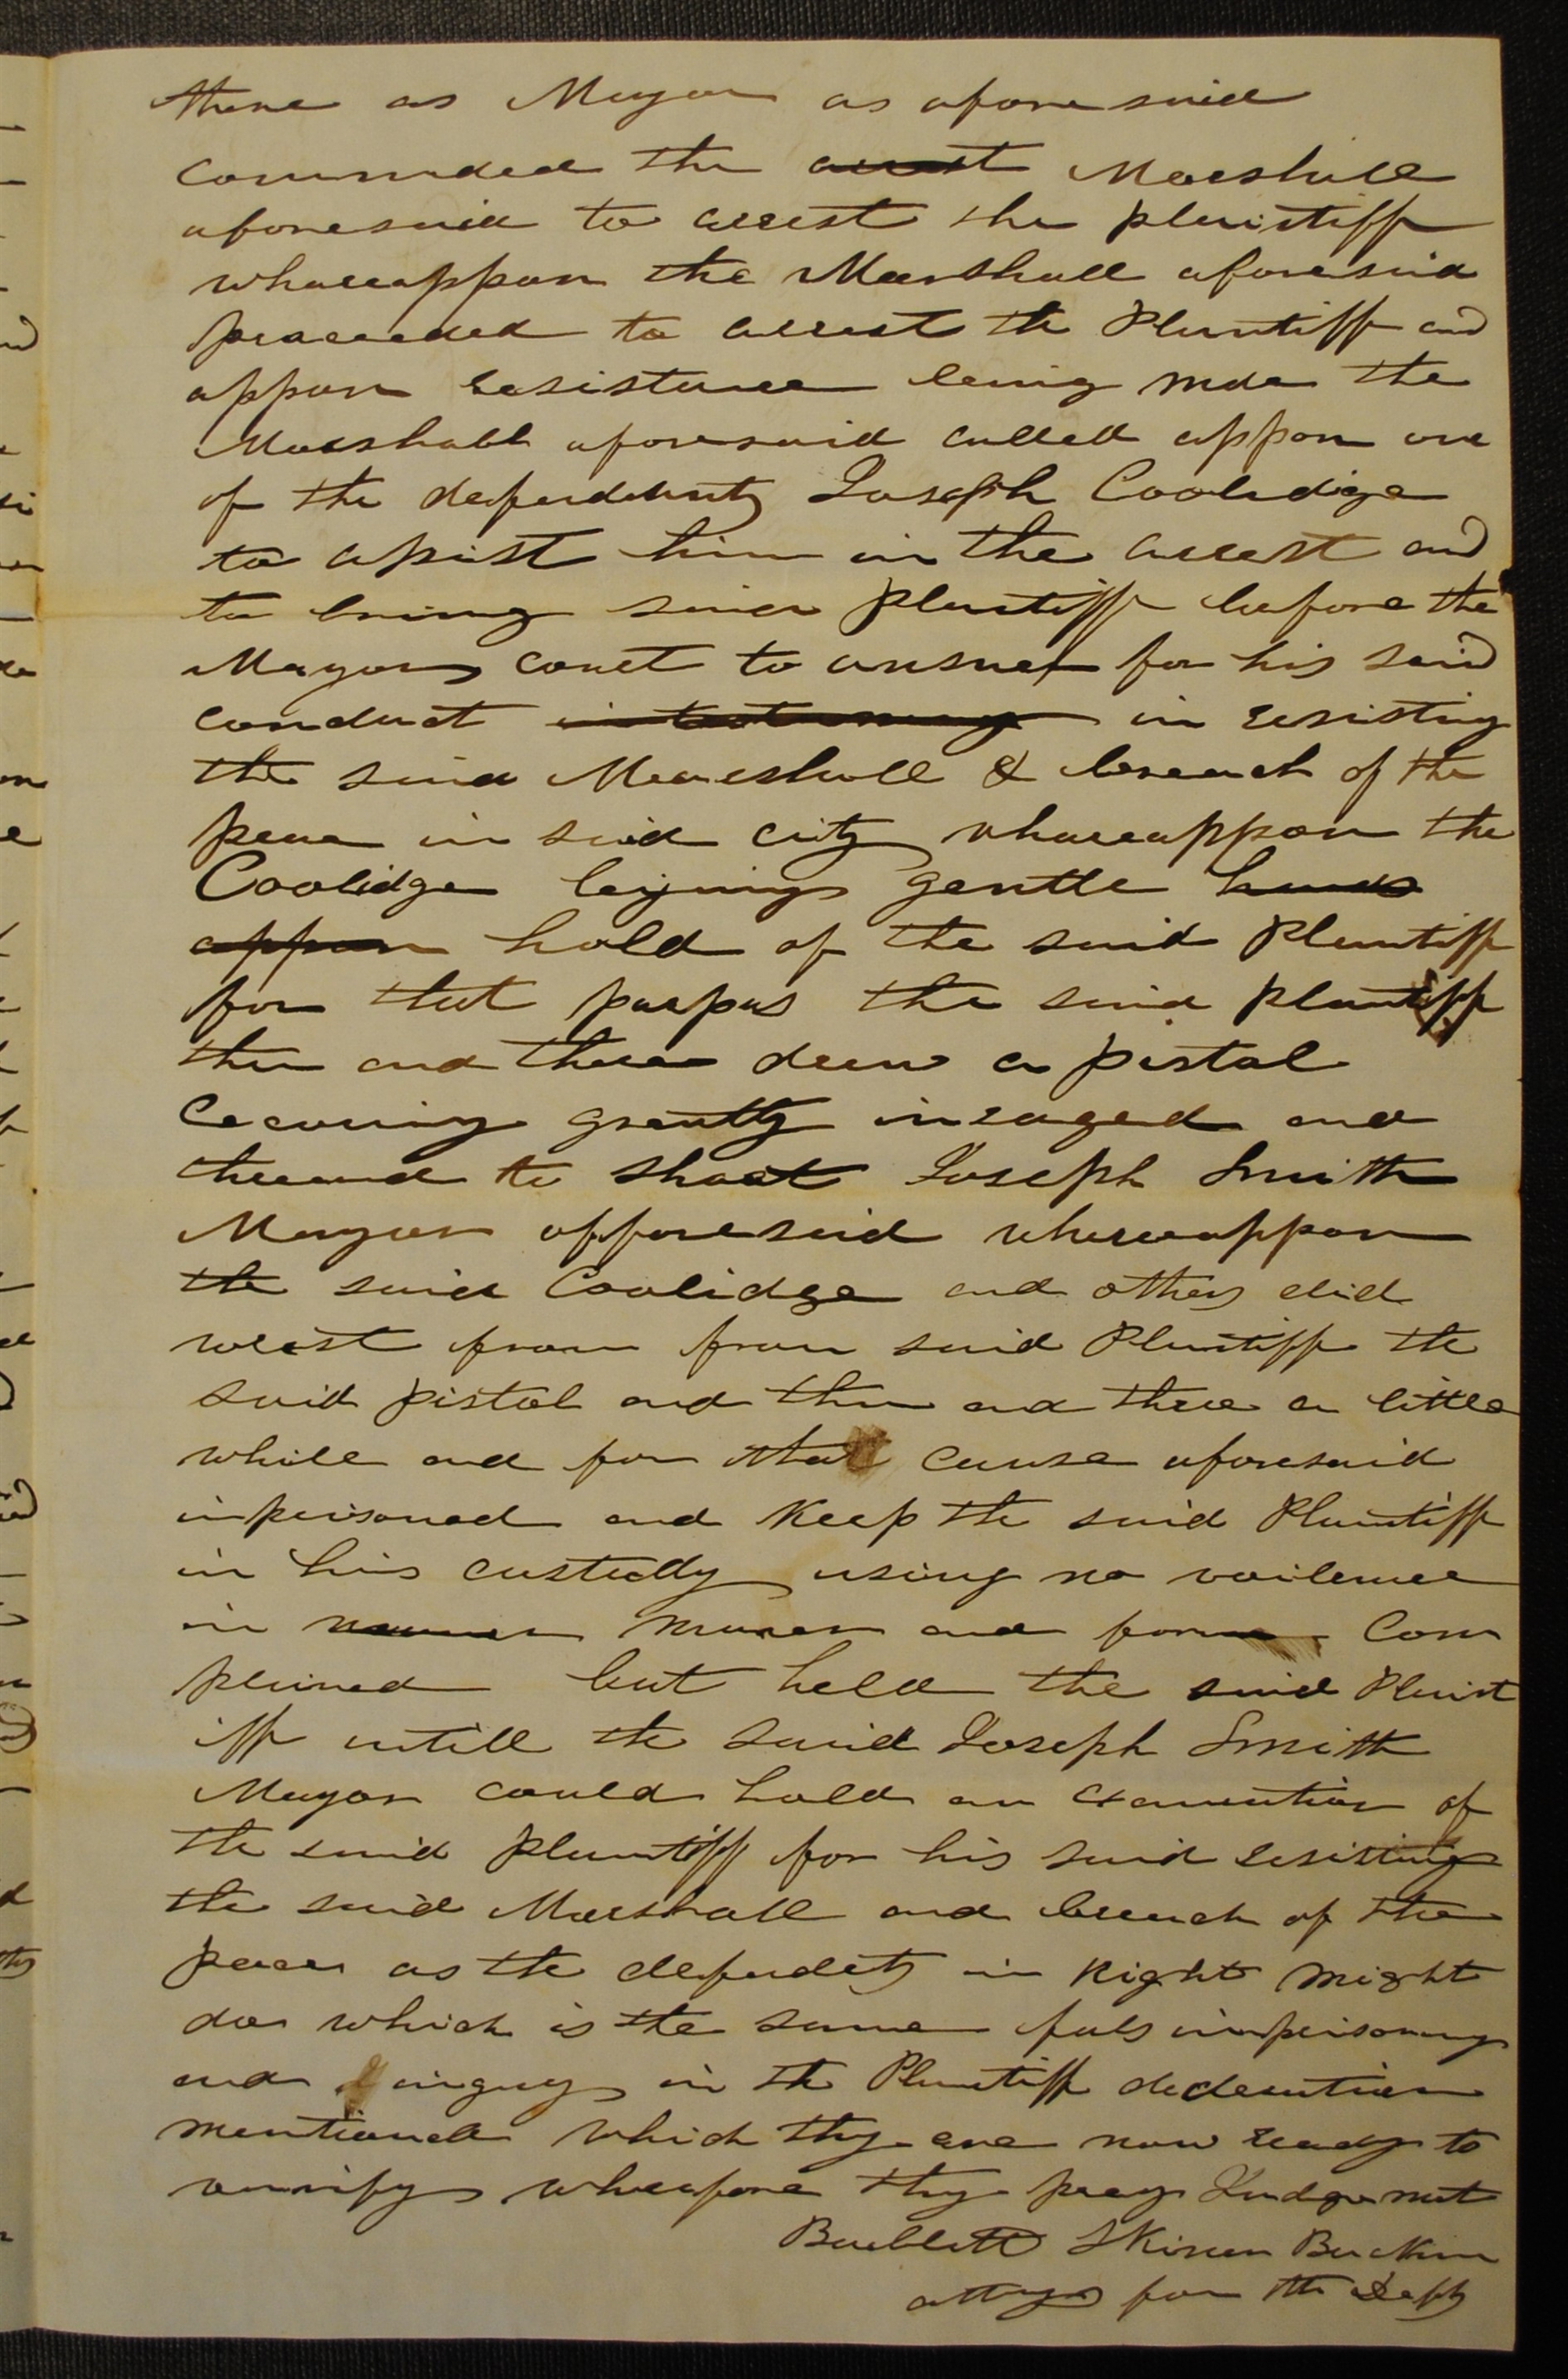 there as Mayor as afore said
commnded the arrest Marshall
aforesaid to arrest the plaintiff
whareappon the Marshall aforesaid
proceeded to arrest the Plantiff and
appon resistance being mde the
Marshall aforesaid called appon one
of the defendents Joseph Coolidge
to assist him in the arrest and
to bring said Plantiff before the
Mayors court to answer for his said
conduct in resisting
the said Marshall & breach of the
peace in said city whareappon the
Coolidge laying gentle hands
appon hold of the said Plantiff
for that purpus the said plantiff
then and there drew a pistol
becoming greatly inraged and
to shoot Joseph Smith
Mayor afforesaid whereappon
the said Coolidge and others did
wrest from from said Plantiff the
said pistol and then and there a little
while and for that cause aforesaid
imprisoned and keep the said Plantiff
in his custedy using no voilence
in manner maner and form Com
plained but held the said Plaint
iff untill the said Joseph Smith
Mayor could hold an examination of
the said plantiff for his said resisting
the said Marshall and breach of the
peace as the defendets in right might
do which is the same fals imprisoning
and in the Plantiff
mentioned which they are now ready to
verrify wherefore they pray Judgement
Bableitt Skinner Buckmn
attrys for the Defts